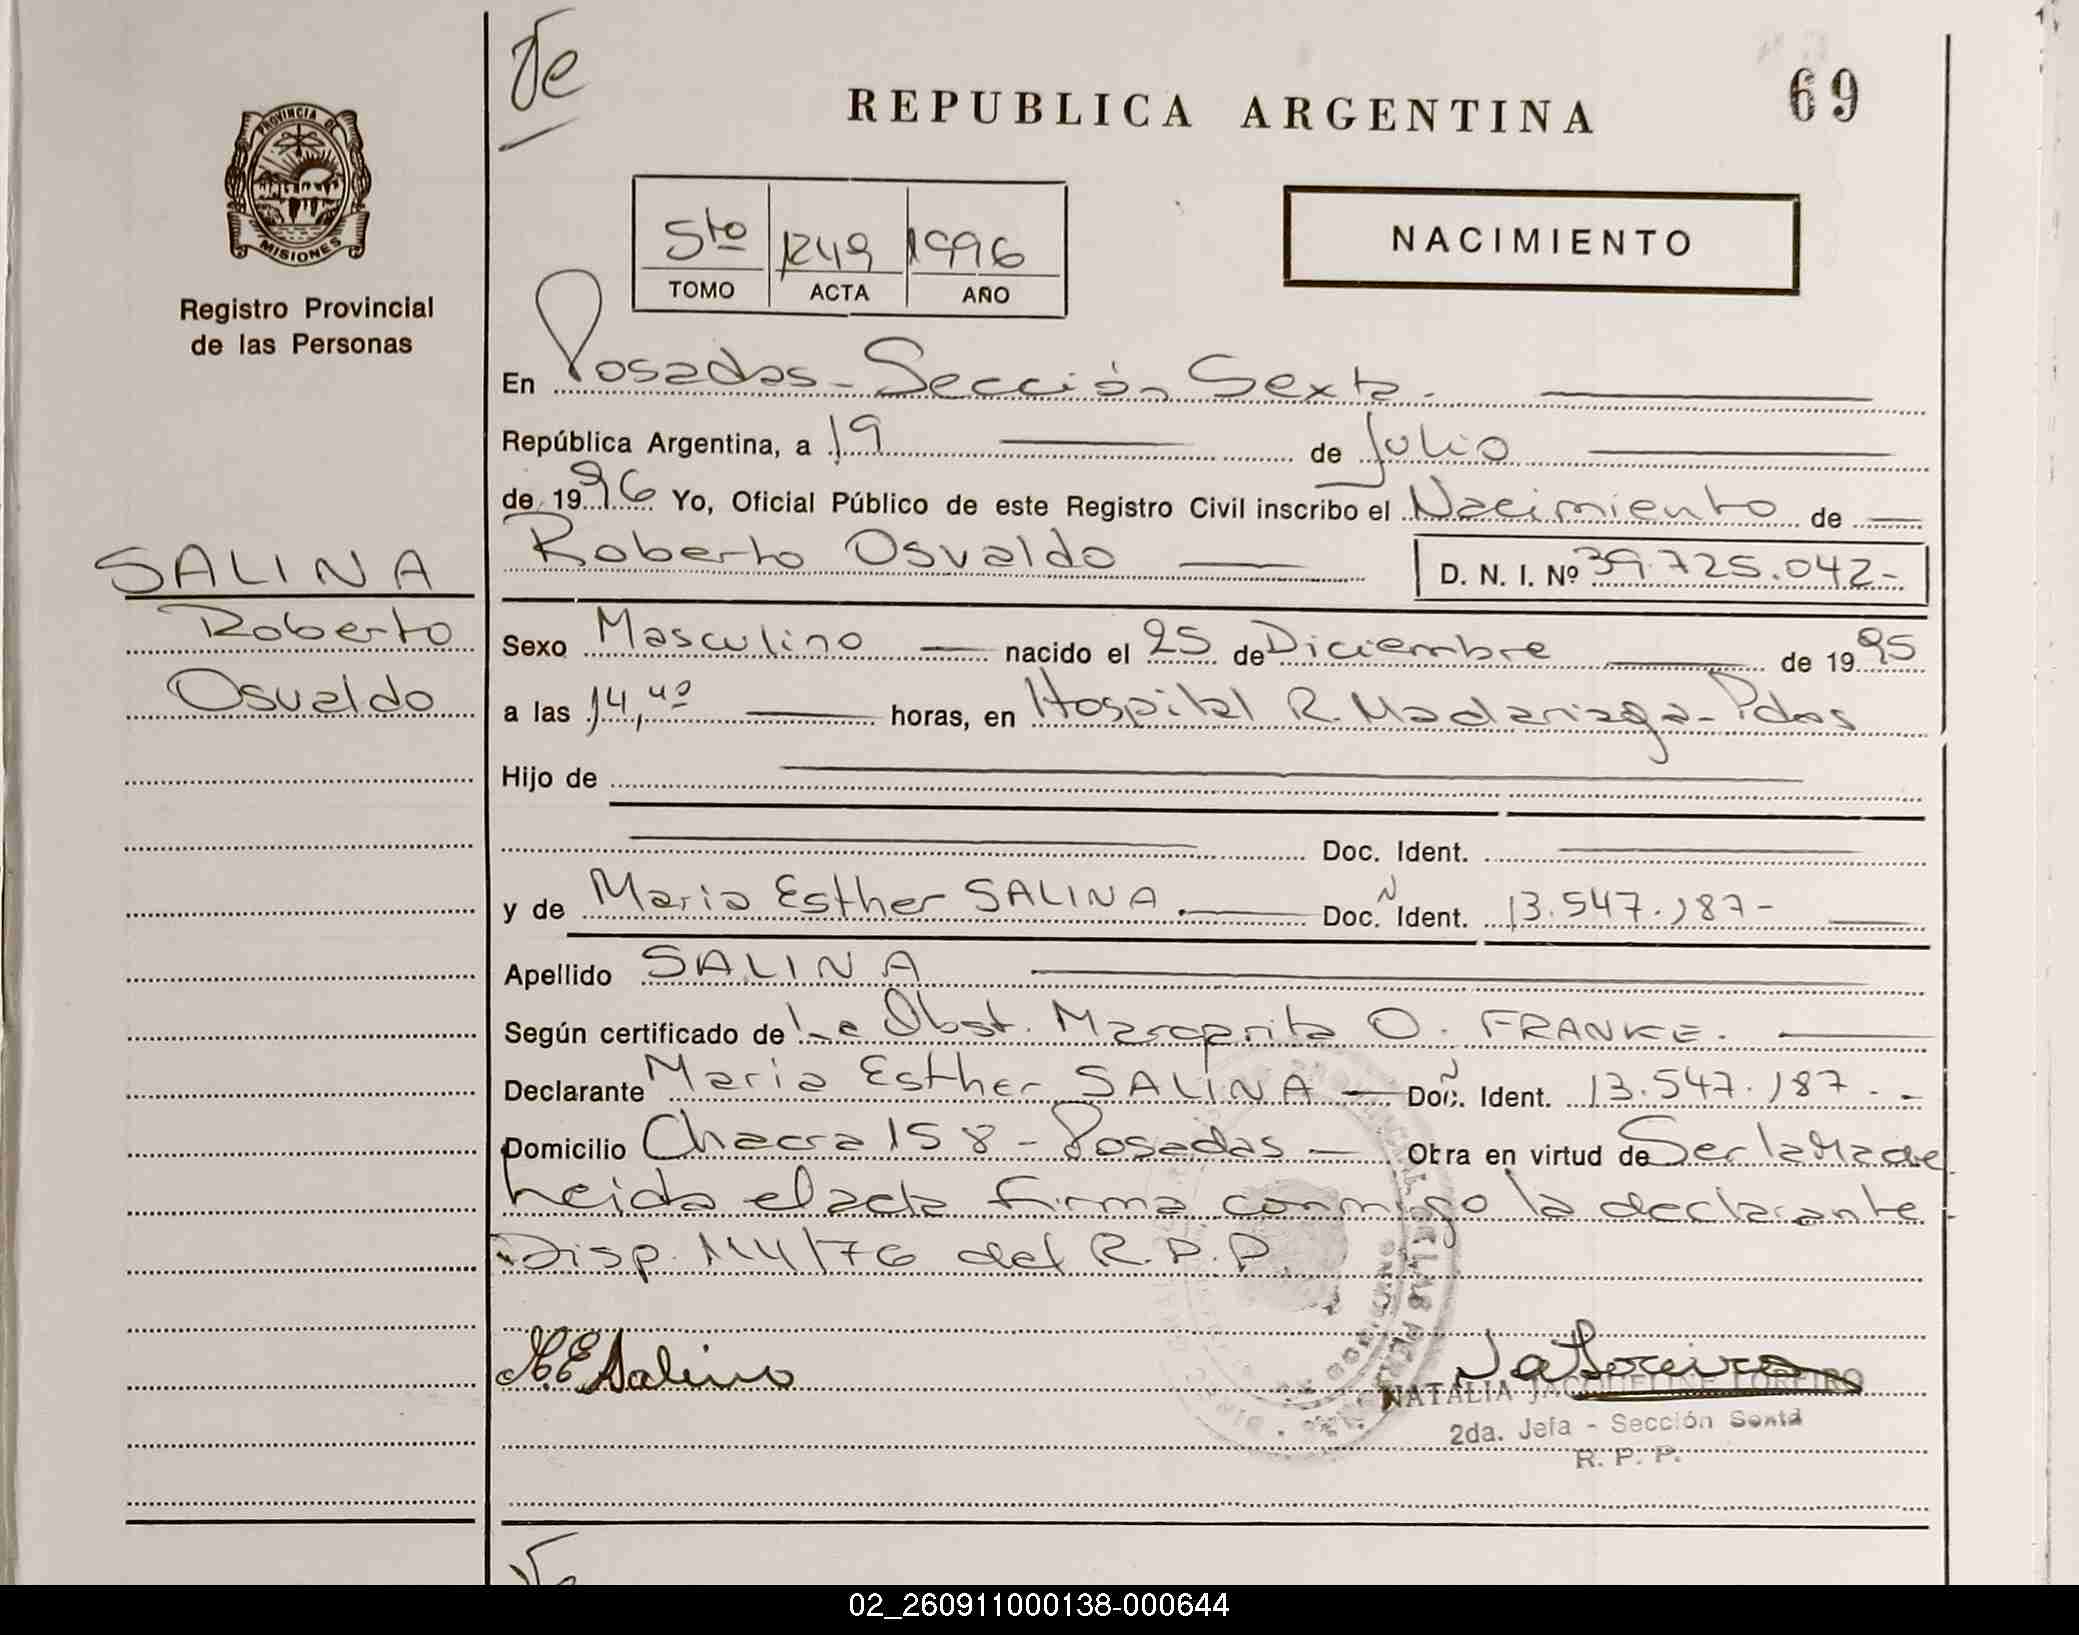 Ve
REPUBLICA ARGENTINA
69
PROVINCIA DE
MISIONES
Registro Provincial
de las Personas
5to 1249 1996
TOMO ACTA AÑO
NACIMIENTO
En Posadas - Sección Sexta.
República Argentina, a 19 de Julio
de 1996 Yo, Oficial Público de este Registro Civil inscribo el Nacimiento de
Roberto Osvaldo D. N. I. Nº 39.725.042-
SALINA
Roberto
Osvaldo
Sexo Masculino nacido el 25 de Diciembre de 1995
a las 14,40 horas, en Hospital R. Madariaga - Pdas
Hijo de
Doc. Ident.
y de Maria Esther SALINA. Doc. N Ident. 13.547.187-
Apellido SALINA
Según certificado de La Obst. Margarita O. FRANKE.
Declarante Maria Esther SALINA - Doc. N Ident. 13.547.187.-
Domicilio Chacra 158 - Posadas - Obra en virtud de Ser la Madre
Leida el acta firma conmigo la declarante
Disp. 114/76 del R.P.P.
M.E Salina
NATALIA JACQUELINE LOREIRO
2da. Jefa - Sección Sexta
R. P. P.
02_260911000138-000644